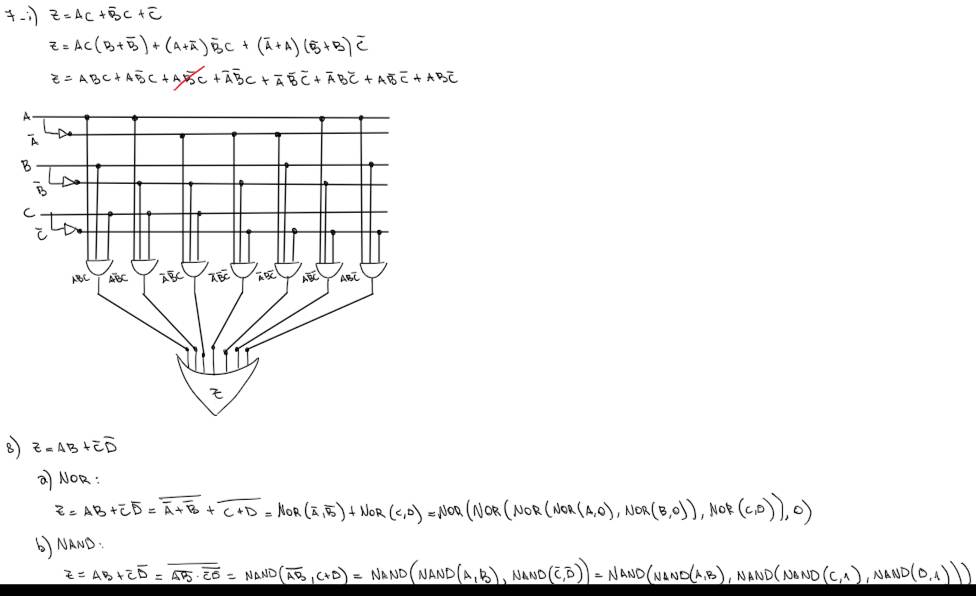 7-i) Z = AC + B̅C + C̅
Z = AC(B+B̅) + (A+A̅)B̅C + (A̅+A)(B̅+B)C̅
Z = ABC + AB̅C + AB̅C + A̅B̅C + A̅B̅C̅ + A̅BC̅ + AB̅C̅ + ABC̅
A
A̅
B
B̅
C
C̅
ABC AB̅C A̅B̅C A̅B̅C̅ A̅BC̅ AB̅C̅ ABC̅
Z
8) Z = AB + C̅D̅
a) NOR:
Z = AB + C̅D̅ = \overline{A̅+B̅} + \overline{C+D} = NOR(A̅,B̅) + NOR(C,D) = NOR(NOR(NOR(NOR(A,0), NOR(B,0)), NOR(C,D)), 0)
b) NAND:
Z = AB + C̅D̅ = \overline{\overline{AB} · \overline{C̅D̅}} = NAND(\overline{AB}, C+D) = NAND(NAND(A,B), NAND(C̅,D̅)) = NAND(NAND(A,B), NAND(NAND(C,1), NAND(D,1)))